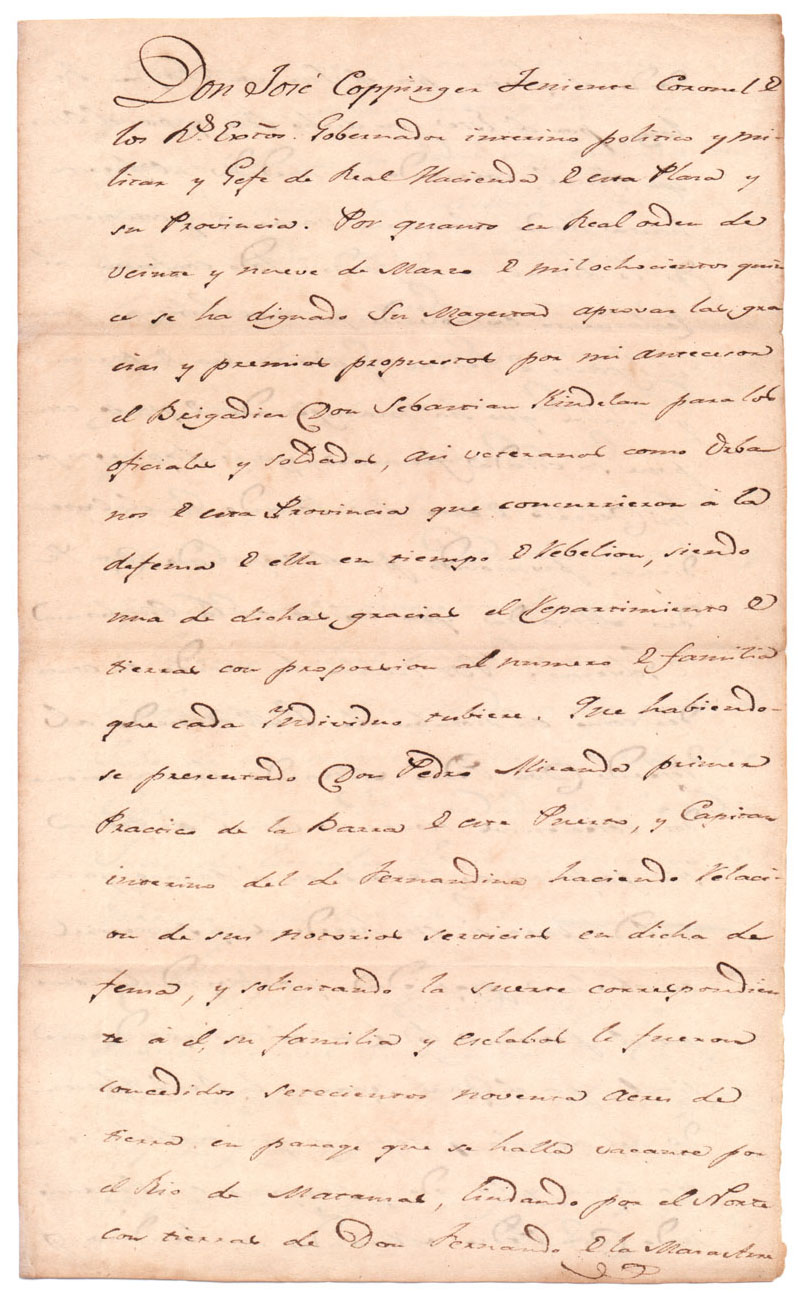 Don José Coppinger Teniente Coronel de
los Rs. Extos. Gobernador interino politico y mi-
litar y Gefe de Real Hacienda de esta Plasa y
su Provincia. Por quanto en Real orden de
veinte y nueve de Marzo de mil ochocientos quin
ce se ha dignado Su Magestad aprovar las gra
cias y premios propuestos por mi antecesor
el Brigadier Don Sebastian Kindelan para los
oficiales y soldados, asi veteranos como Urba
nos de esta Provincia que concurrieron à la
defensa de ella en tiempo de Rebelion, siendo
una de dichas gracias el Repartimiento de
tierras con proporsion al numero de familia
que cada Individuo tubiere. Que habiendo-
se presentado Don Pedro Miranda primer
Practico de la Barra de este Puerto, y Capitan
interino del de Fernandina haciendo Relaci-
on de sus notorios servicios en dicha de
fensa, y solicitando la suerte correspondien
te á él, su familia y esclabos le fueron
concedidos setecientos noventa acres de
tierra en parage que se halla vacante por
el Rio de Matamas, lindando por el Norte
con tierras de Don Fernando de la Maza Arre